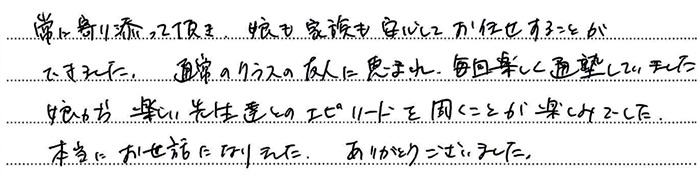 常に寄り添って頂き、娘も家族も安心してお任せすることが
できました。 通常のクラスの友人に恵まれ、毎回楽しく通塾していました
娘から楽しい先生達とのエピソードを聞くことが楽しみでした。
本当にお世話になりました。 ありがとうございました。